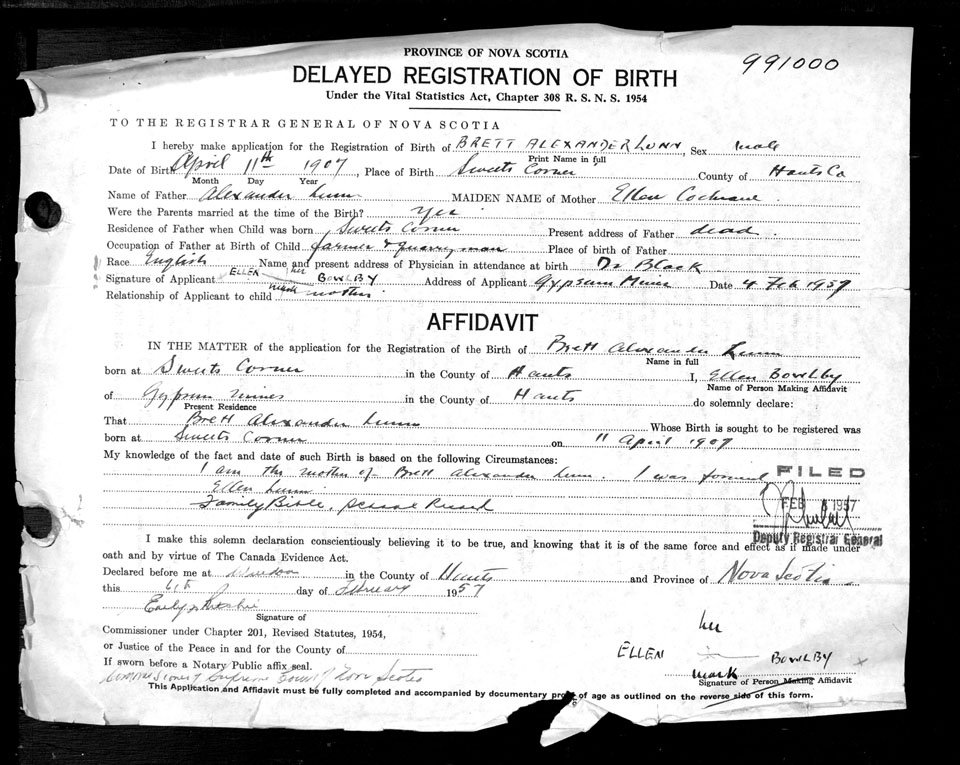 PROVINCE OF NOVA SCOTIA
991000
DELAYED REGISTRATION OF BIRTH
Under the Vital Statistics Act, Chapter 308 R. S. N. S. 1954
TO THE REGISTRAR GENERAL OF NOVA SCOTIA
I hereby make application for the Registration of Birth of BRETT ALEXANDER LUNN, Sex male
Print Name in full
Date of Birth April 11th 1907, Place of Birth Sweets Corner County of Hants Co
Month Day Year
Name of Father Alexander Lunn MAIDEN NAME of Mother Ellen Cochrane
Were the Parents married at the time of the Birth? Yes
Residence of Father when Child was born Sweets Corner Present address of Father dead.
Occupation of Father at Birth of Child farmer & quarryman Place of birth of Father
Race English Name and present address of Physician in attendance at birth Dr Black
Signature of Applicant ELLEN her mark BOWLBY Address of Applicant Gypsum Mines Date 4 Feb 1957
Relationship of Applicant to child mother
AFFIDAVIT
IN THE MATTER of the application for the Registration of the Birth of Brett Alexander Lunn
Name in full
born at Sweets Corner in the County of Hants I, Ellen Bowlby
Name of Person Making Affidavit
of Gypsum Mines in the County of Hants do solemnly declare:
Present Residence
That Brett Alexander Lunn Whose Birth is sought to be registered was
born at Sweets Corner on 11 April 1907
My knowledge of the fact and date of such Birth is based on the following Circumstances:
I am the mother of Brett Alexander Lunn. I was formerly
Ellen Lunn.
Family Bible, Record
FILED
FEB 8 1957
Deputy Registrar General
I make this solemn declaration conscientiously believing it to be true, and knowing that it is of the same force and effect as if made under
oath and by virtue of The Canada Evidence Act.
Declared before me at Windsor in the County of Hants and Province of Nova Scotia
this 6th day of February 1957
Signature of
Commissioner under Chapter 201, Revised Statutes, 1954,
or Justice of the Peace in and for the County of
If sworn before a Notary Public affix seal.
Commissioner of Supreme Court of Nova Scotia
her
ELLEN BOWLBY x
mark
Signature of Person Making Affidavit
This Application and Affidavit must be fully completed and accompanied by documentary proof of age as outlined on the reverse side of this form.